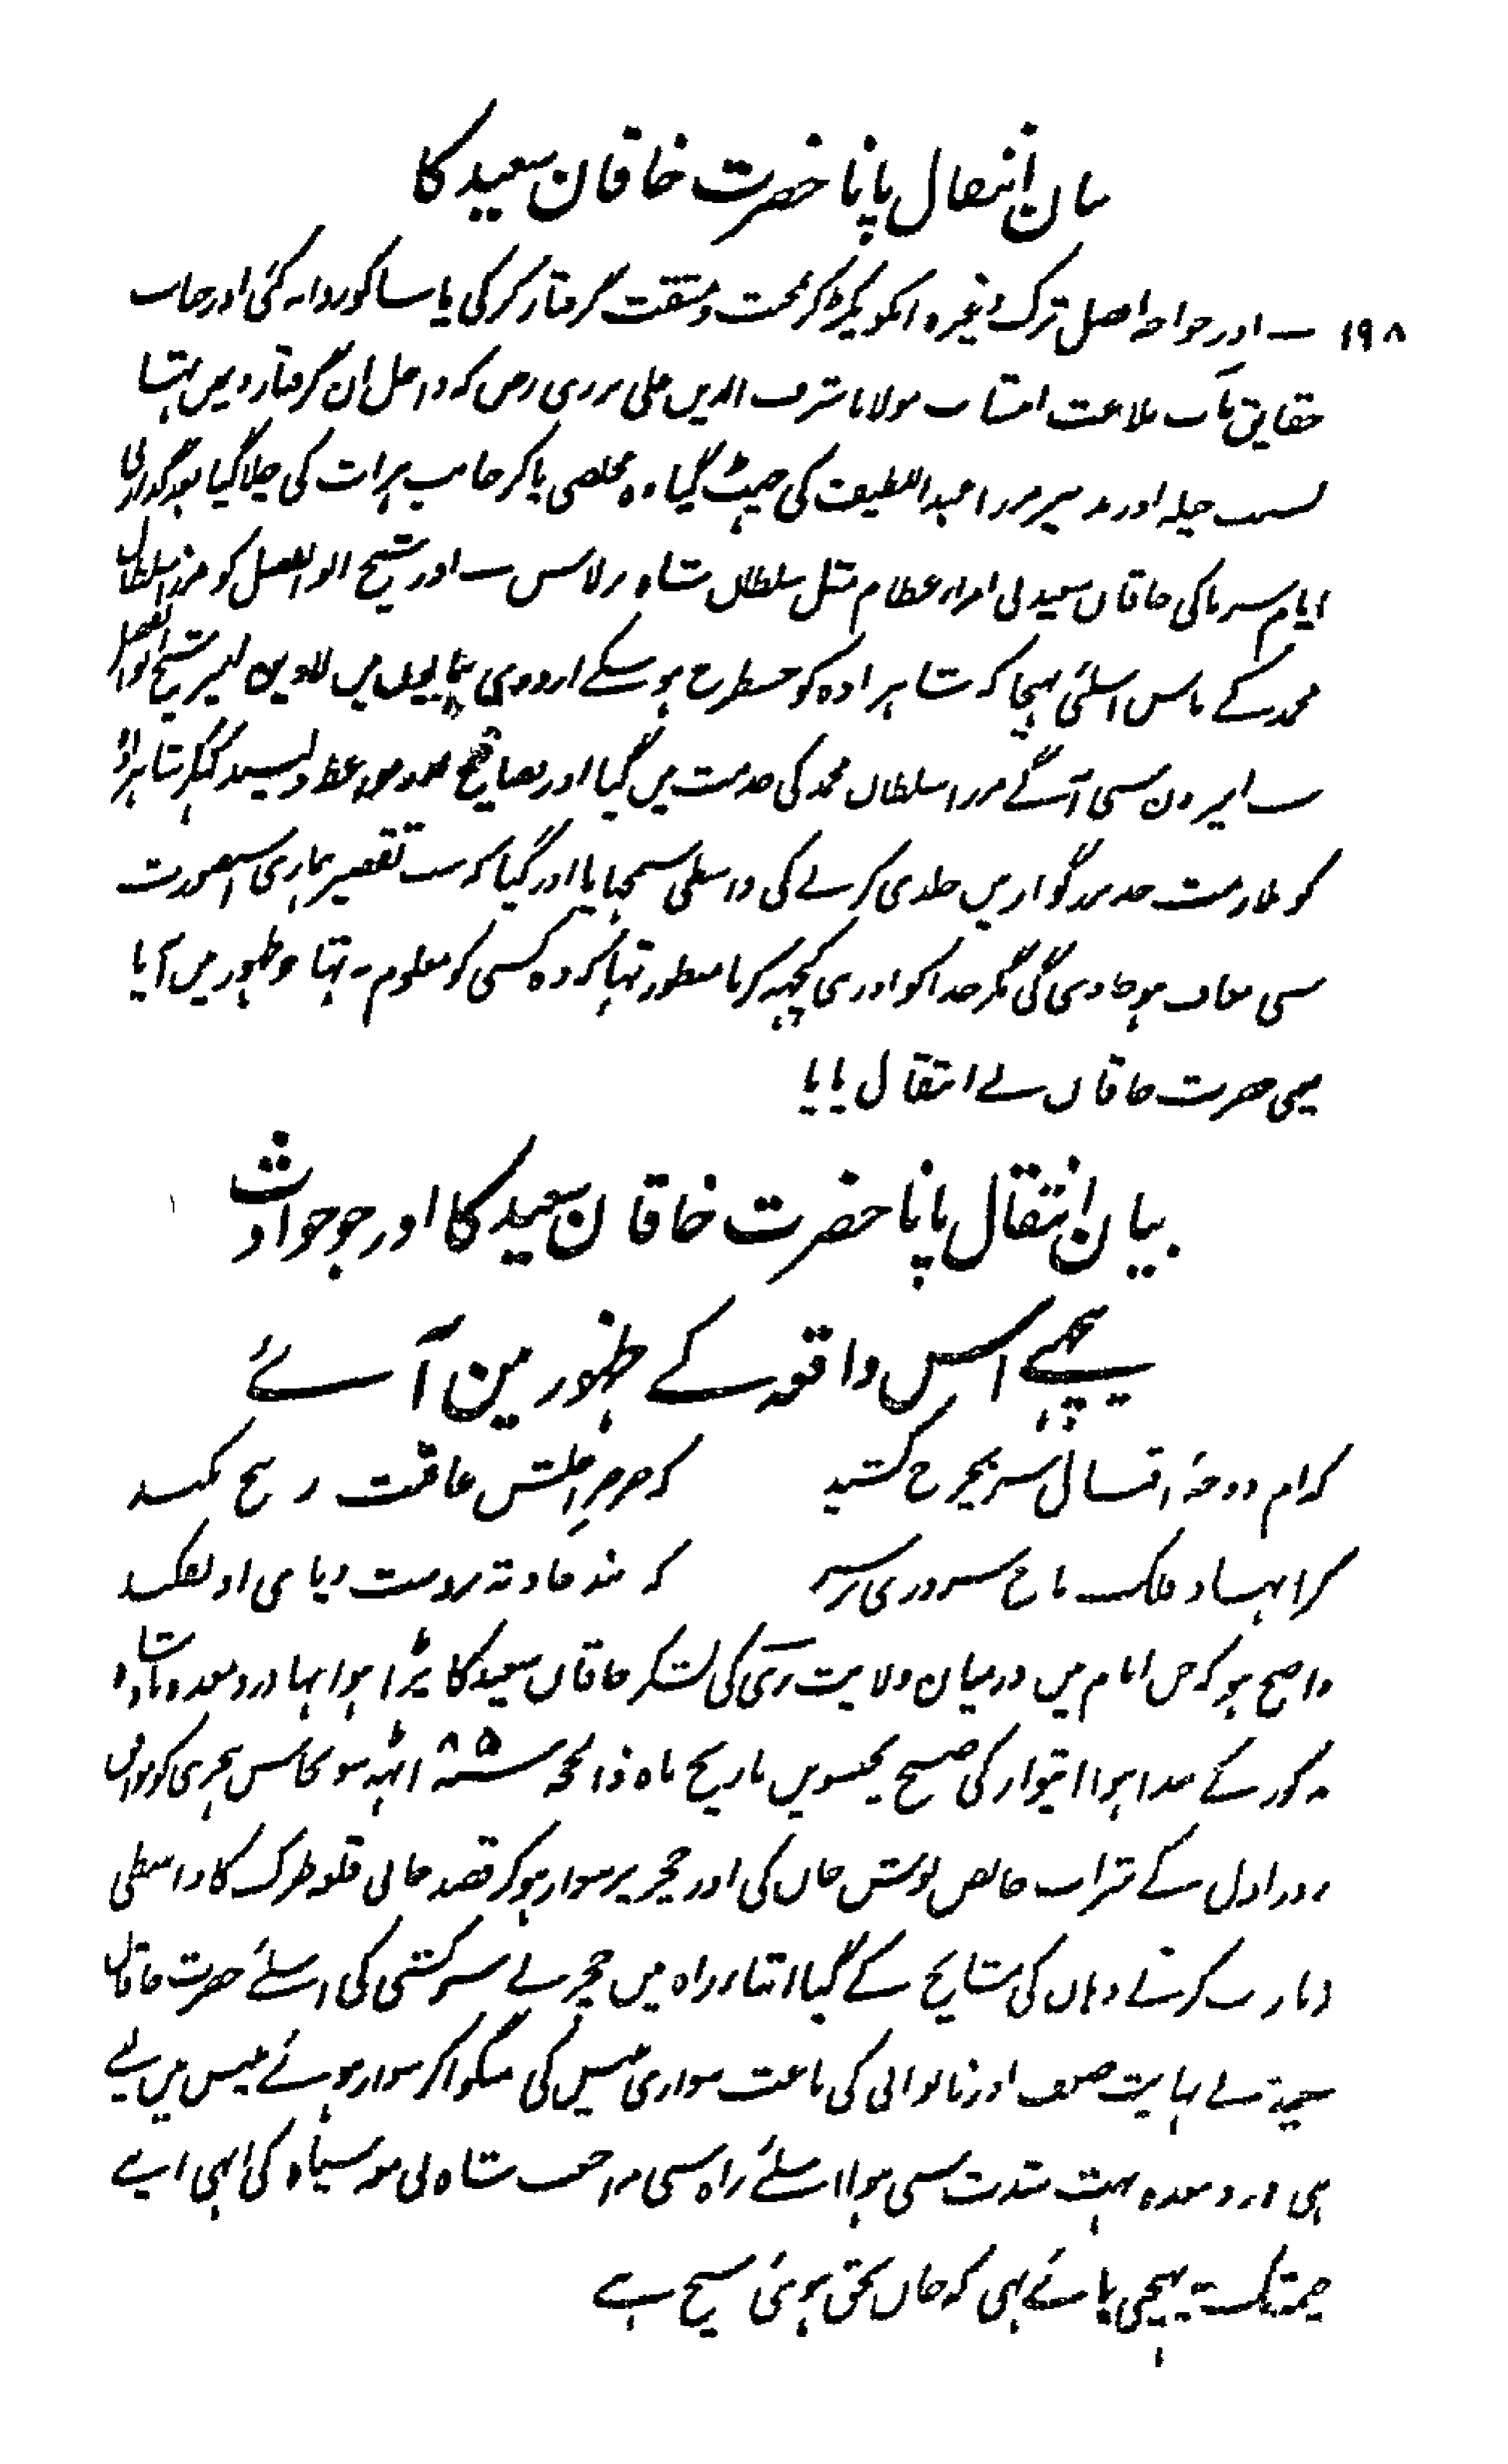 بیان انتقال پانا حضرت خاقان سعید کا
۱۹۸ ـ اور خواجہ افضل ترک وغیرہ انکو پکڑ کر محنت و مشقت گرفتار کر کی یا ساکو روانہ کئی اور جناب
حقایق مآب بلاغت انتساب مولانا شرف الدین علی یزدی رح کہ داخل ان گرفتاروں میں تہا
بسبب حیلہ اور تدبیر مرزا عبداللطیف کی چہٹ گیا وہ مخلصی پاکر جانب ہرات کی چلا گیا بعد گذرنی
ایام سرما کی خاقان سعید نی امراء عظام مثل سلطان شاہ برلاس ـ اور شیخ ابو الفضل کو مرزا سلطان
محمد کے پاس اسلئی بہیجا کہ شاہزادہ کو جسطرح ہو سکے اردوی میں لاویں شیخ ابوالفضل
آگے مرزا سلطان محمد کی خدمت میں گیا اور نصایح وعظ کہکر شاہزادہ
کو ملازمت جد بزرگوار میں جلدی کرنے کی واسطی سمجہایا اور کہا کہ سب تقصیر ہماری اسصورت
سی معاف ہو جاوی گی مگر خدا کو اور ہی کچہہ کرنا منظور تہا کہ وہ کسی کو معلوم نہ تہا وہ ظہور میں آیا
یعنی حضرت خاقان نے انتقال پایا
بیان انتقال پانا حضرت خاقان سعید کا اور جو حوادث
پیچہے اس واقعہ کے ظہور مین آئے
کدام دوحۂ اقبال سر بچرخ کشید کہ صرصر اجلش عاقبت ز بیخ نکند
کرا نہاد فلک تاج سروری بر سر کہ بند حادثہ بر دست و پای او نفکند
واضح ہو کہ جن ایام میں درمیان ولایت ری کی لشکر خاقان سعید کا پڑا ہوا تہا درد معدہ شاہ
مذکور کے پیدا ہوا اتیوار کی صبح پچیسویں تاریخ ماہ ذالحجہ سنہ ۸۵۰ اٹہہ سو پچاس ہجری کو موافق
روز اول کے شراب خالص نوش جان کی اور خچر پر سوار ہو کر قصد جانی قلعہ طبرک کا واسطی
زیارت کرنے وہاں کی مشایخ کے گیا اثناء راہ میں خچر نے سرکشی کی اسلئے حضرت خاقان
سعید نے نہایت ضعف اور ناتوانی کی باعث سواری میس کی منگوا کر سوار ہوئے میس میں بی
ہی درد معدہ بہت شدت سی ہوا اسلئے راہ سی مراجعت شاہ نی معہ سپاہ کی ابہی اپنے
خیمہ تک نہ پہنچی پائے تہی کہ جان بحق ہوئی سچ ہے